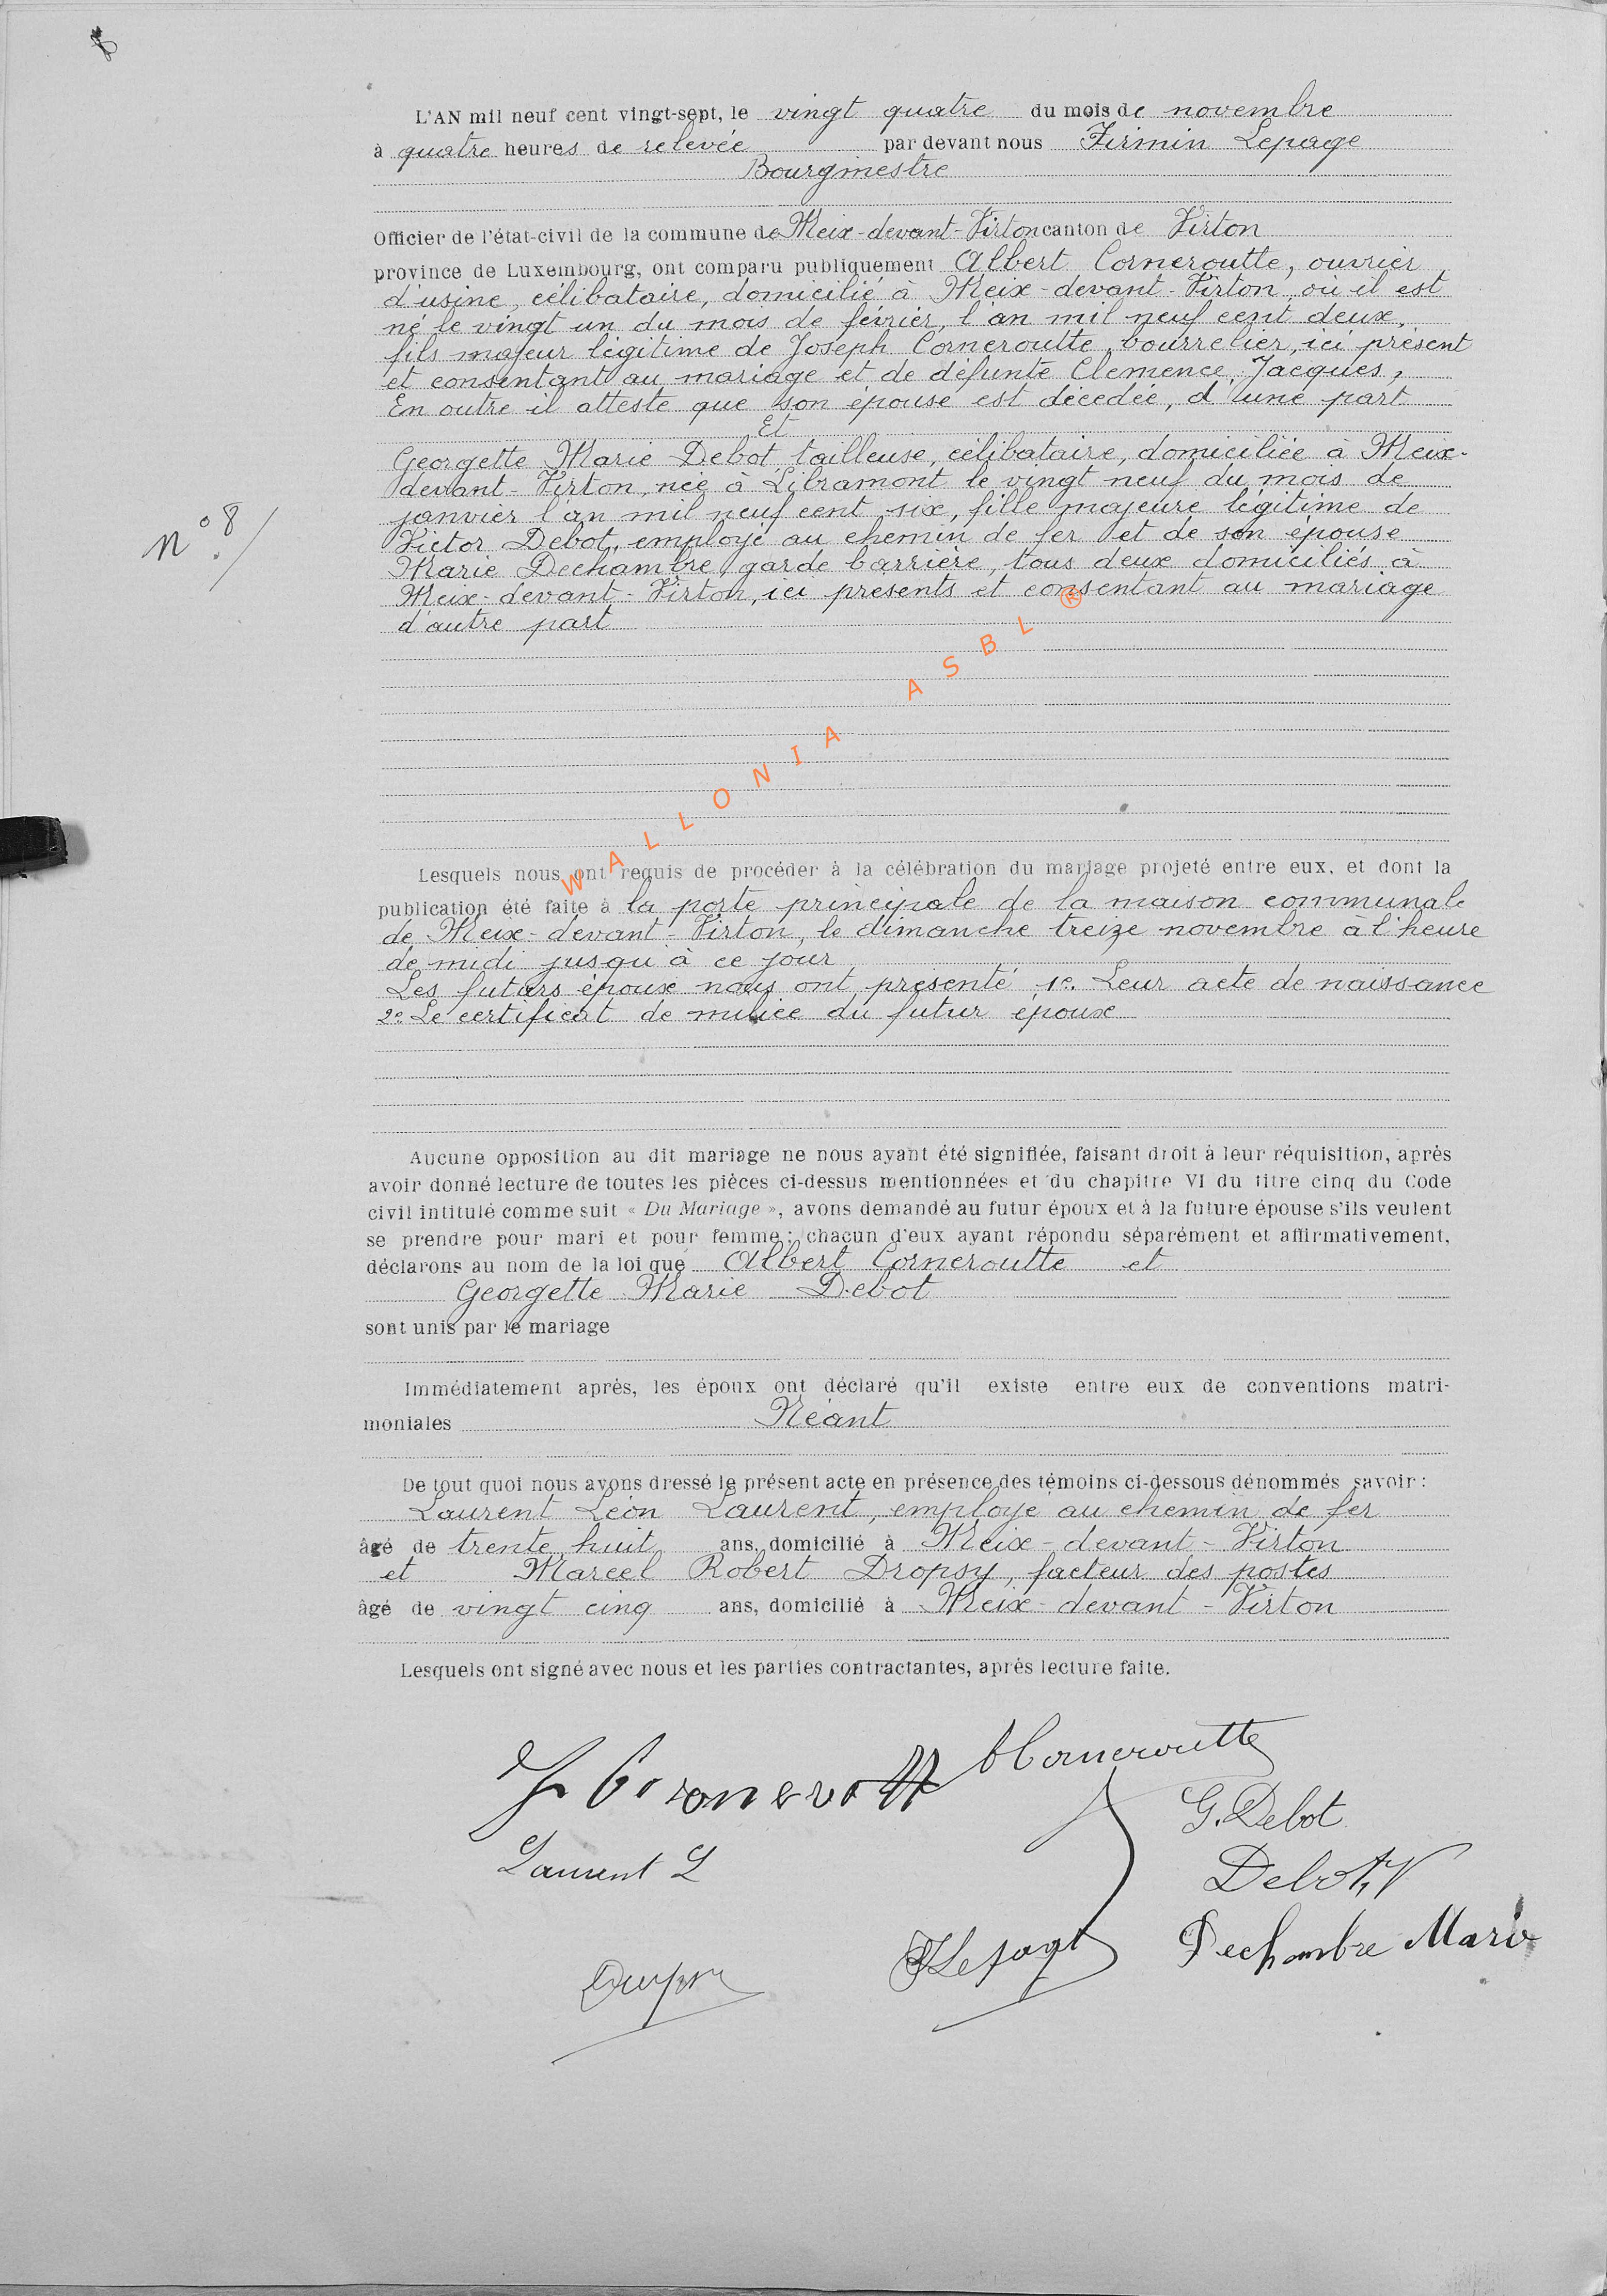 L'AN mil neuf cent vingt-sept, le vingt quatre du mois de novembre
à quatre heures de relevée par devant nous Firmin Lepage
Bourgmestre
Officier de l'état-civil de la commune de Meix-devant-Virton canton de Virton
province de Luxembourg, ont comparu publiquement Albert Corneroutte, ouvrier
d'usine, célibataire, domicilié à Meix-devant-Virton, où il est
né le vingt un du mois de février, l'an mil neuf cent deux,
fils majeur légitime de Joseph Corneroutte, bourrelier, ici présent
et consentant au mariage et de défunte Clémence Jacques,
En outre il atteste que son épouse est décédée, d'une part
Et
Georgette Marie Debot, tailleuse, célibataire, domiciliée à Meix-
devant-Virton, née à Libramont le vingt neuf du mois de
janvier l'an mil neuf cent six, fille majeure légitime de
N° 8
Victor Debot, employé au chemin de fer et de son épouse
Marie Dechambre, garde barrière, tous deux domiciliés à
Meix-devant-Virton, ici présents et consentant au mariage
d'autre part
WALLONIA ASBL ®
Lesquels nous ont requis de procéder à la célébration du mariage projeté entre eux, et dont la
publication été faite à la porte principale de la maison communale
de Meix-devant-Virton, le dimanche treize novembre à l'heure
de midi jusqu'à ce jour
Les futurs époux nous ont présenté 1e. Leur acte de naissance
2e Le certificat de milice du futur époux
Aucune opposition au dit mariage ne nous ayant été signifiée, faisant droit à leur réquisition, après
avoir donné lecture de toutes les pièces ci-dessus mentionnées et du chapitre VI du titre cinq du Code
civil intitulé comme suit « Du Mariage », avons demandé au futur époux et à la future épouse s'ils veulent
se prendre pour mari et pour femme ; chacun d'eux ayant répondu séparément et affirmativement,
déclarons au nom de la loi que Albert Corneroutte et
Georgette Marie Debot
sont unis par le mariage
Immédiatement après, les époux ont déclaré qu'il existe entre eux de conventions matri-
moniales Néant
De tout quoi nous avons dressé le présent acte en présence des témoins ci-dessous dénommés savoir :
Laurent Léon Laurent, employé au chemin de fer
âgé de trente huit ans, domicilié à Meix-devant-Virton
et Marcel Robert Dropsy, facteur des postes
âgé de vingt cinq ans, domicilié à Meix-devant-Virton
Lesquels ont signé avec nous et les parties contractantes, après lecture faite.
Corneroutte
G. Debot
Laurent L
Debot, V
Dechambre Marie
FLepage